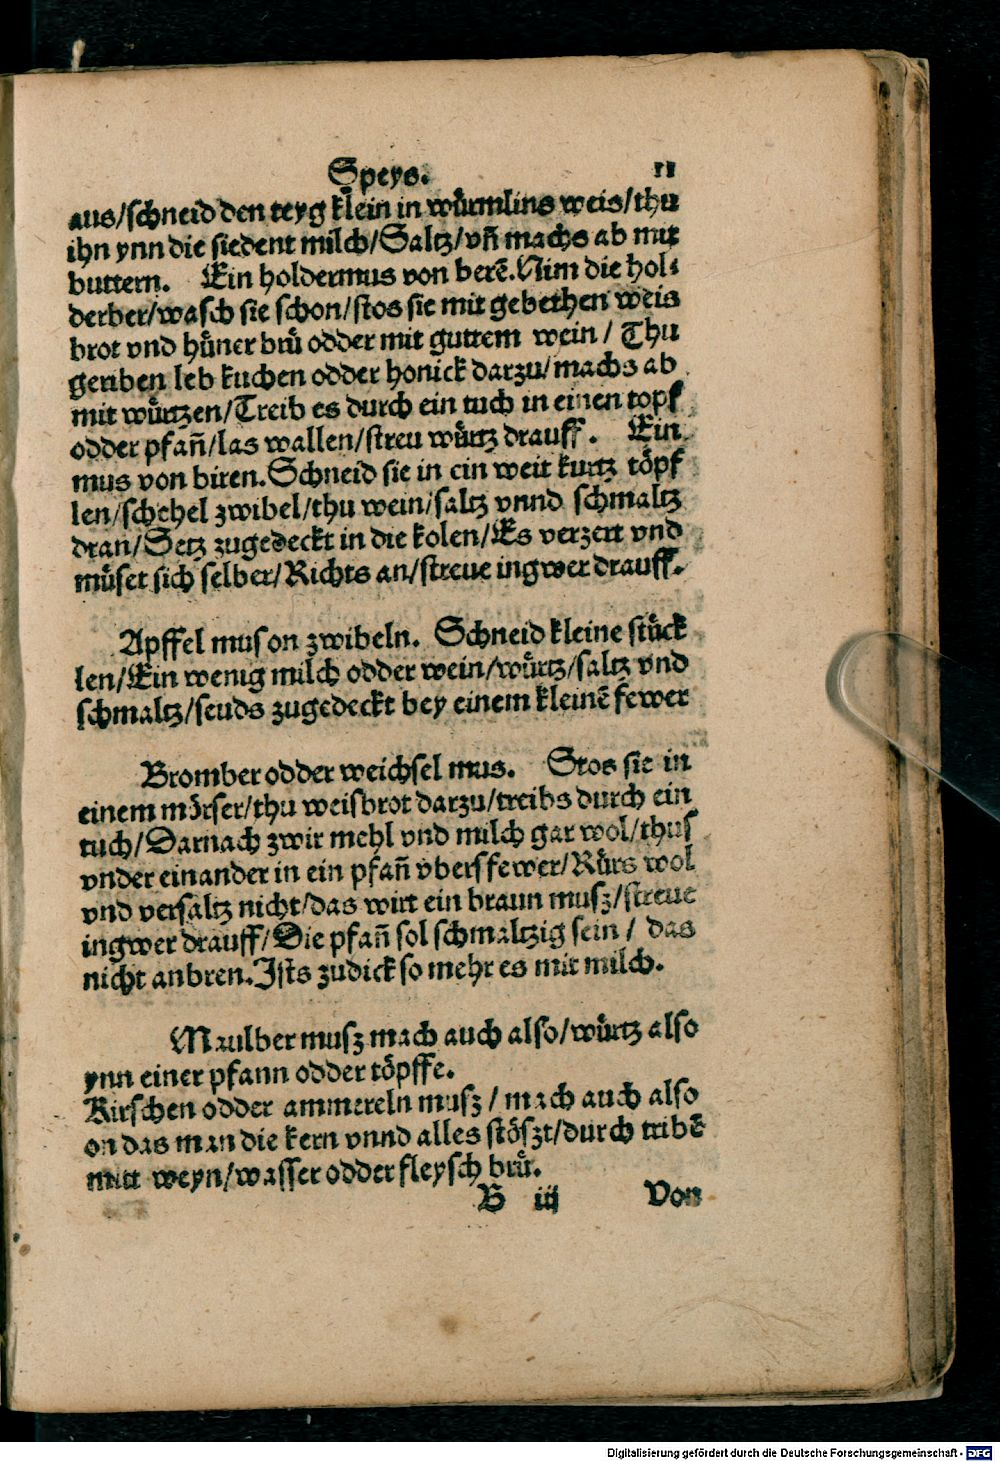 Speys. 11
aus/schneid den teyg klein in wuͤrmlins weis/thu
ihn ynn die siedent milch/Saltz/vñ machs ab mit
buttern. Ein holdermus von berẽ. Nim die hol⸗
derber/wasch sie schon/stos sie mit gebethen weis
brot vnd huͤner bruͤ odder mit guttem wein / Thu
geriben leb kuchen odder honick darzu/machs ab
mit wuͤrtzen/Treib es durch ein tuch in einen topf
odder pfañ/las wallen/streu wuͤrtz drauff. Ein
mus von biren. Schneid sie in ein weit kurtz toͤpf
len/schehel zwibel/thu wein/saltz vnnd schmaltz
dran/Setz zugedeckt in die kolen/Es verzert vnd
muͤset sich selber/Richts an/streue ingwer drauff.
Apffel mus on zwibeln. Schneid kleine stuͤck
len/Ein wenig milch odder wein/wuͤrtz/saltz vnd
schmaltz/seuds zugedeckt bey einem kleinẽ fewer
Bromber odder weichsel mus. Stos sie in
einem moͤrser/thu weisbrot darzu/treibs durch ein
tuch/Darnach zwir mehl vnd milch gar wol/thus
vnder einander in ein pfañ vbers fewer/Ruͤrs wol
vnd versaltz nicht/das wirt ein braun musz/streue
ingwer drauff/Die pfañ sol schmaltzig sein / das
nicht anbren. Ists zudick so mehr es mit milch.
Maulber musz mach auch also/wuͤrtz also
ynn einer pfann odder toͤpffe.
Kirschen odder ammereln musz / mach auch also
on das man die kern vnnd alles stoͤszt/durch tribẽ
mitt weyn/wasser odder fleysch bruͤ.
B iij Von
Digitalisierung gefördert durch die Deutsche Forschungsgemeinschaft - DFG